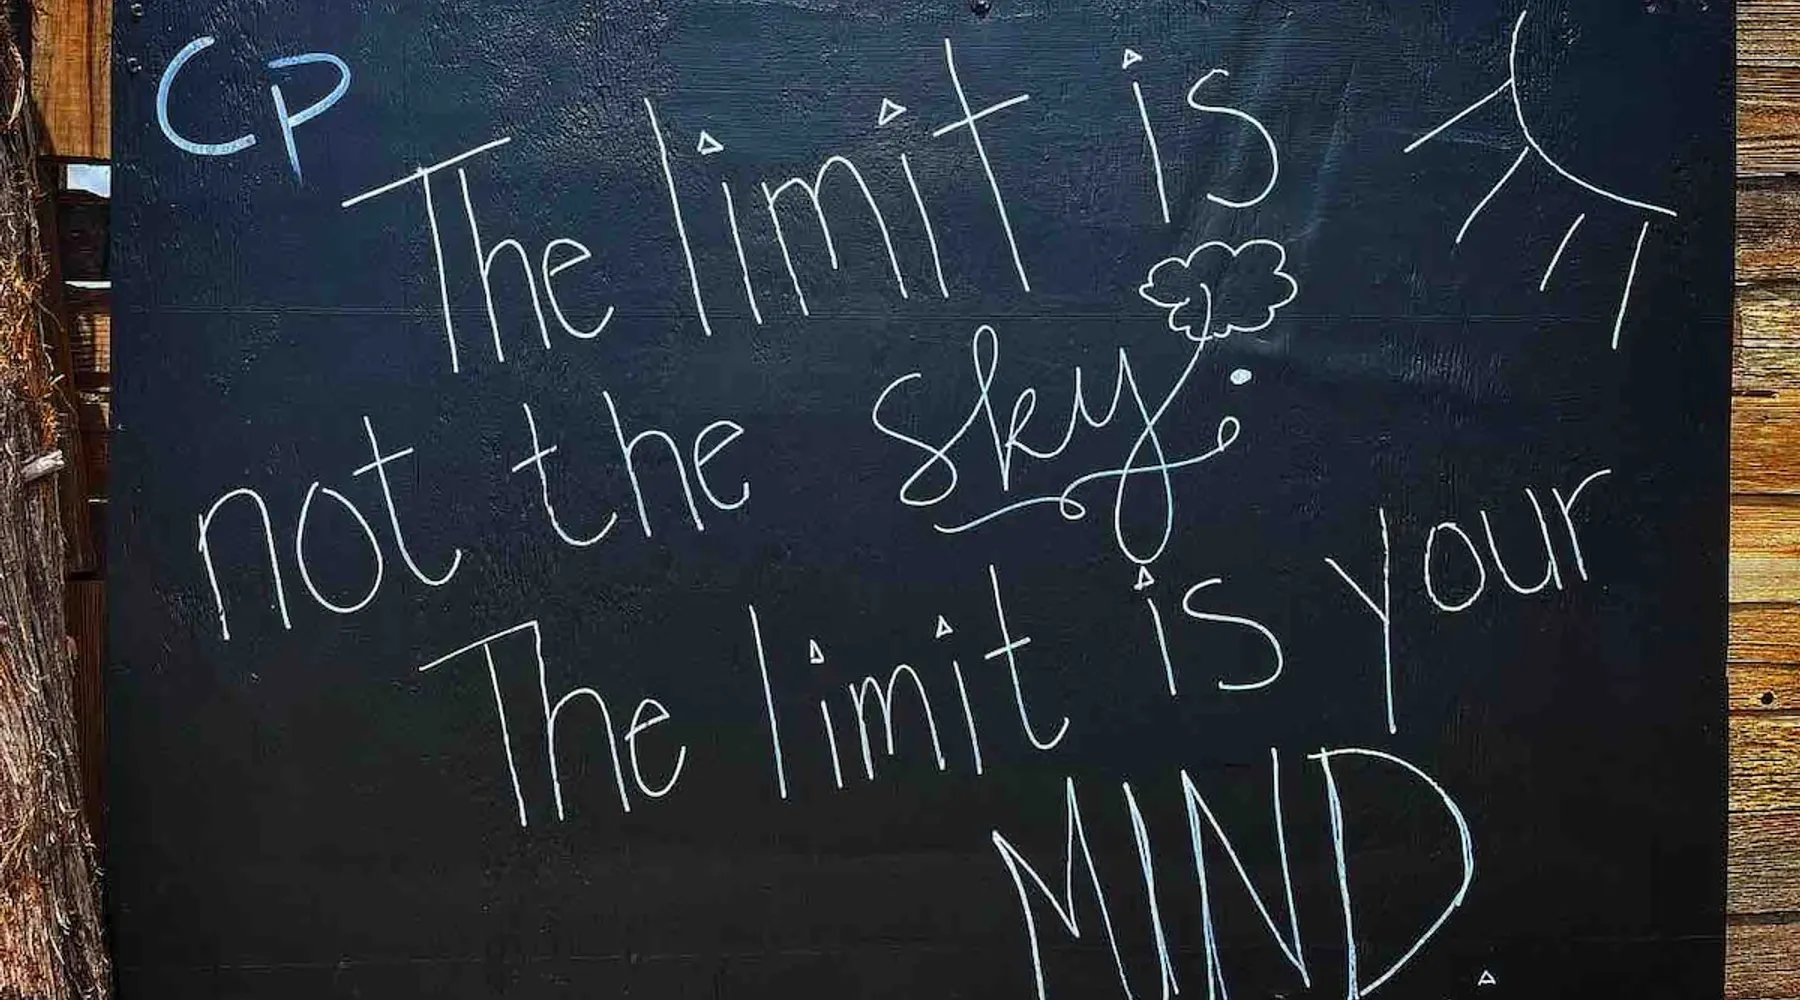 CP
The limit is
not the sky.
The limit is your
MIND.